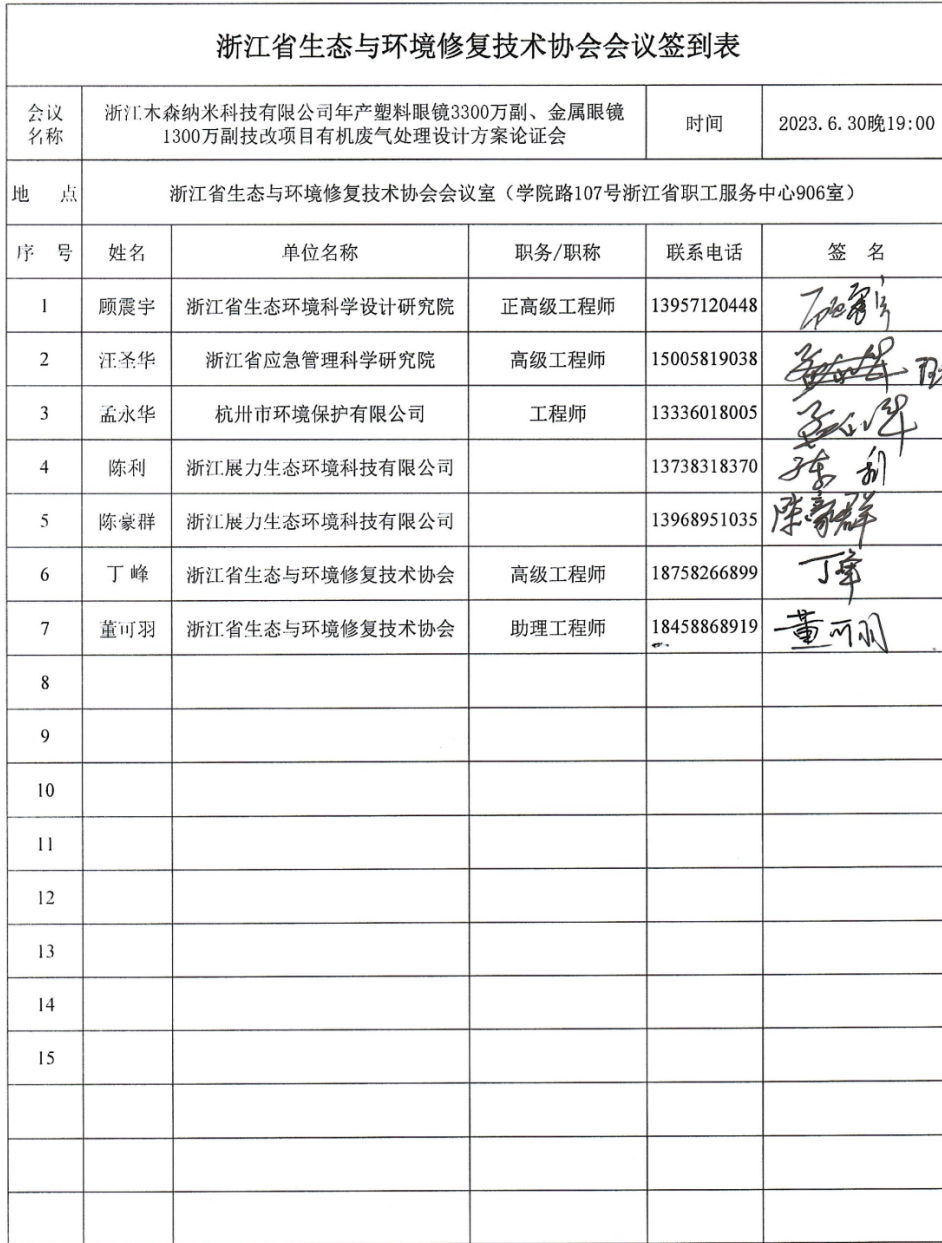 浙江省生态与环境修复技术协会会议签到表
会议名称 浙江木森纳米科技有限公司年产塑料眼镜3300万副、金属眼镜1300万副技改项目有机废气处理设计方案论证会 时间 2023.6.30晚19:00
地 点 浙江省生态与环境修复技术协会会议室（学院路107号浙江省职工服务中心906室）
序 号 姓名 单位名称 职务/职称 联系电话 签 名
1 顾震宇 浙江省生态环境科学设计研究院 正高级工程师 13957120448 顾震宇
2 汪圣华 浙江省应急管理科学研究院 高级工程师 15005819038
3 孟永华 杭州市环境保护有限公司 工程师 13336018005 孟永华
4 陈利 浙江展力生态环境科技有限公司 13738318370 陈利
5 陈豪群 浙江展力生态环境科技有限公司 13968951035 陈豪群
6 丁峰 浙江省生态与环境修复技术协会 高级工程师 18758266899 丁峰
7 董可羽 浙江省生态与环境修复技术协会 助理工程师 18458868919 董可羽
8
9
10
11
12
13
14
15